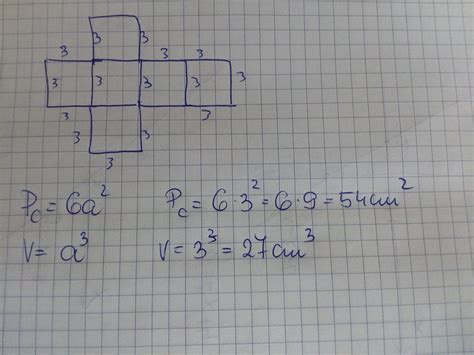 3 3
3 3 3 3
3 3 3 3 3
3 3
3 3
3
P_c = 6a² P_c = 6·3² = 6·9 = 54cm²
V = a³ V = 3³ = 27cm³